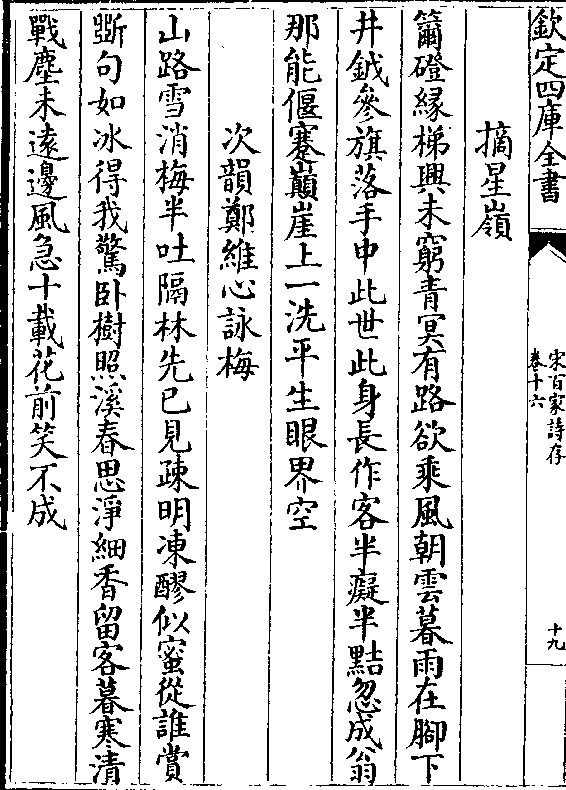 欽定四庫全書
宋百家詩存
卷十六
十九
摘星嶺
籋磴緣梯興未窮青冥有路欲乘風朝雲暮雨在腳下
井鉞參旗落手中此世此身長作客半癡半黠忽成翁
那能偃蹇巔崖上一洗平生眼界空
次韻鄭維心詠梅
山路雪消梅半吐隔林先已見疎明凍醪似蜜從誰賞
斷句如冰得我驚卧樹照溪春思淨細香留客暮寒清
戰塵未遠邊風急十載花前笑不成